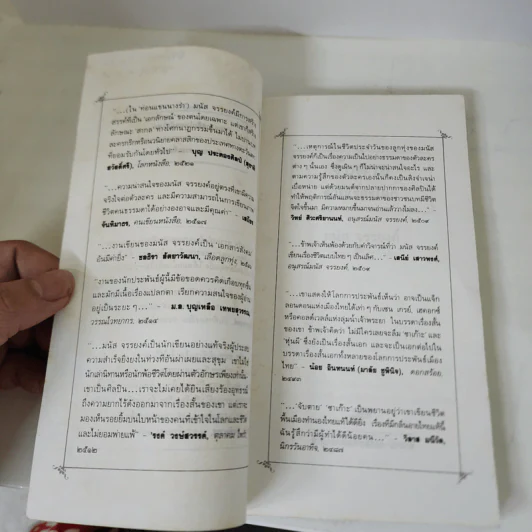 "...(ใน 'ท่อนแขนนางรำ') มนัส จรรยงค์มีการสร้
สรรค์ที่เป็น 'เอกลักษณ์' ของตนโดยเฉพาะ
ลักษณะ 'สากล' ทางโศกนาฏกรรมขึ้นมาได้
ที่ยอมรับกันโดยทั่วไป" - บุญ
สวัสดิ์ศรี), โลกหนังสือ, ๒๕๒๑
"...ความน่าสนใจของมนัส จรรยงค์อยู่ตรงที่เขามีความ
จริงใจต่อตัวละคร และมีความสามารถในการเขียนภาพ
ชีวิตคนธรรมดาได้อย่างองอาจและมีคุณค่า" - เสถียร
จันทิมาธร, คนเขียนหนังสือ, ๒๕๑๗
"...งานเขียนของมนัส จรรยงค์เป็น 'เอกสารสังคม'
อันมีค่ายิ่ง" - ชลธิรา สัตยาวัฒนา, เลือดลูกทุ่ง, ๒๕
"งานของนักประพันธ์ผู้นี้มีข้อขอดควรคิดเกือบทุกชิ้น
และมักมีเนื้อเรื่องแปลกตา เรียกความสนใจของผู้อ่าน
อยู่เป็นระยะ ๆ..." - ม.ล. บุญเหลือ เทพยสุวรรณ,
วรรณไวทยากร, ๒๕๑๔
"...มนัส จรรยงค์เป็นนักเขียนอย่างแท้จริงผู้ประสบ
ความสำเร็จยิ่งยงในท่วงทีอันผ่าเผยและสุขุม เขาไม่ใช่
นักเล่นิทานหรือนักพ้อชีวิตโดยผ่านตัวอักษรเพียงเท่านั้น
เขาเป็นศิลปิน...เราจะไม่เคยได้ยินเสียงร้องอุทธรณ์
ถึงความยากไร้ดังออกมาจากเรื่องสั้นของเขา แต่เราจะ
มองเห็นรอยยิ้มบนใบหน้าของคนที่เข้าใจในโลกและชีวิต
และไม่ยอมพ่ายแพ้" - 'รงค์ วงษ์สวรรค์,
๒๕๑๒
"...เหตุการณ์ในชีวิตประจำวันของลูกทุ่งของมนัส
จรรยงค์ก็เป็นเรื่องความเป็นไปอย่างธรรมดาของตัวละคร
ต่าง ๆ นั้นเอง ซึ่งดูเผิน ๆ ก็ไม่น่าจะน่าสนใจอะไร และ
ตามความรู้สึกของตัวละครเองนั้นก็คงเป็นสิ่งจำเจน่า
เบื่อหน่าย แต่ด้วยมนต์จากปลายปากกาของศิลปินได้
ทำให้พฤติกรรมอันแสนจะธรรมดาของชาวชนบทมีชีวิต
จิตใจขึ้นมา มีความหมายขึ้นมาจนอ่านแล้ววางไม่ลง..." -
วิทย์ ศิวะศริยานนท์, อนุสรณ์มนัส จรรยงค์, ๒๕๐๙
"...ข้าพเจ้าเห็นพ้องด้วยกับคำวิจารณ์ที่ว่า มนัส จรรยงค์
เขียนเรื่องชีวิตแบบไทย ๆ เป็นเลิศ..." - เสนีย์ เสาวพงศ์,
อนุสรณ์มนัส จรรยงค์, ๒๕๐๙
"...เขาแสดงให้โลกการประพันธ์เห็นว่า อาจเป็นแจ๊ก
ลอนดอนแห่งเมืองไทยได้เท่า ๆ กับเซน เกรย์, เฮดอกซ์
หรือคอลด์เวลล์แห่งลุ่มน้ำเจ้าพระยา ในบรรดาเรื่องสั้น
ของเขา ข้าพเจ้าคิดว่า ไม่มีใครเลยจะลืม 'ซาเก๊าะ' และ
'หุ่นผี' ซึ่งยังเป็นเรื่องสั้นเอก และจะเป็นเอกต่อไปใน
บรรดาเรื่องสั้นเอกทั้งหลายของโลกการประพันธ์เมือง
ไทย" - น้อย อินทนนท์ (มาลัย ชูพินิจ), ดอกสร้อย
๒๔๙๓
"...'จับตาย' 'ซาเก๊าะ' เป็นพยานอยู่ว่าเขาเขียนชีวิต
พื้นเมืองทำนองไทยแท้ได้ดียิ่ง เรื่องที่มีกลิ่นอายไทยแท้นี้
ฉันรู้สึกว่ามีผู้ทำได้ดีน้อยคน..." - วิลาศ มณีวัต,
นิกรวันอาทิตย์, ๒๔๘๗